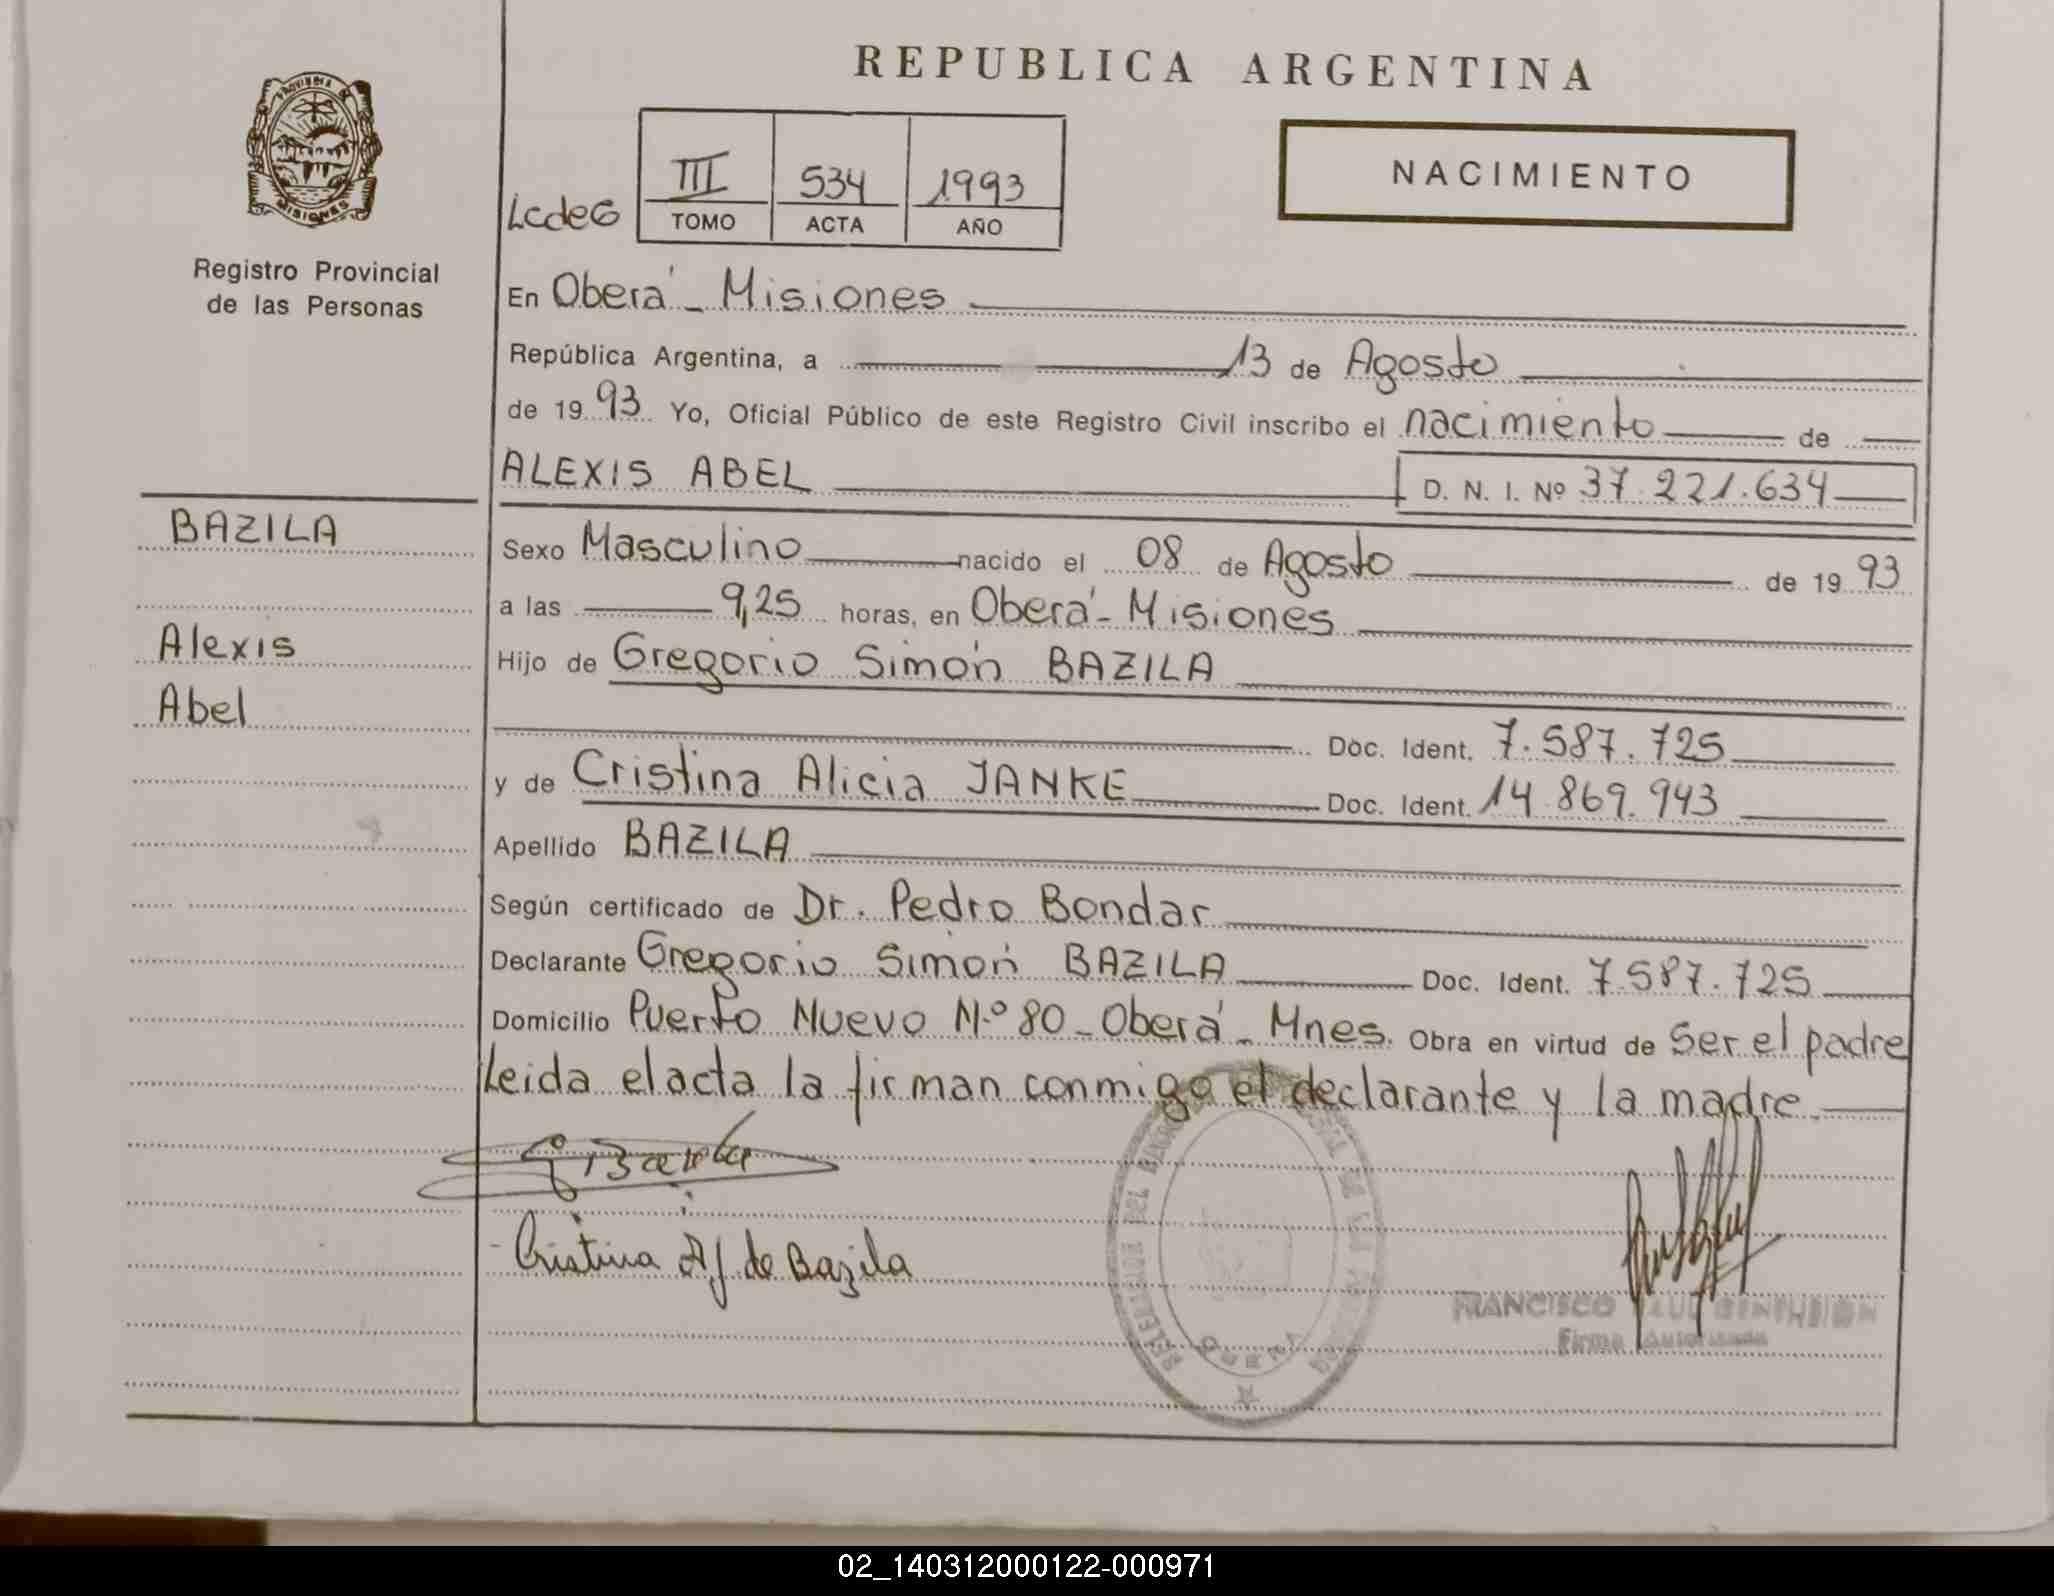 REPUBLICA ARGENTINA
PROVINCIA DE
MISIONES
Registro Provincial
de las Personas
LcdeG
III 534 1993
TOMO ACTA AÑO
NACIMIENTO
En Oberá - Misiones
República Argentina, a 13 de Agosto
de 1993 Yo, Oficial Público de este Registro Civil inscribo el nacimiento de
ALEXIS ABEL D. N. I. Nº 37.221.634
BAZILA
Alexis
Abel
Sexo Masculino nacido el 08 de Agosto de 1993
a las 9,25 horas, en Oberá - Misiones
Hijo de Gregorio Simón BAZILA
Doc. Ident. 7.587.725
y de Cristina Alicia JANKE Doc. Ident. 14.869.943
Apellido BAZILA
Según certificado de Dr. Pedro Bondar
Declarante Gregorio Simón BAZILA Doc. Ident. 7.587.725
Domicilio Puerto Nuevo N.º 80 - Oberá - Mnes. Obra en virtud de Ser el padre
Leida el acta la firman conmigo el declarante y la madre.
Cristina A J. de Bazila
OBERA
FRANCISCO
Firma Autorizada
02_140312000122-000971